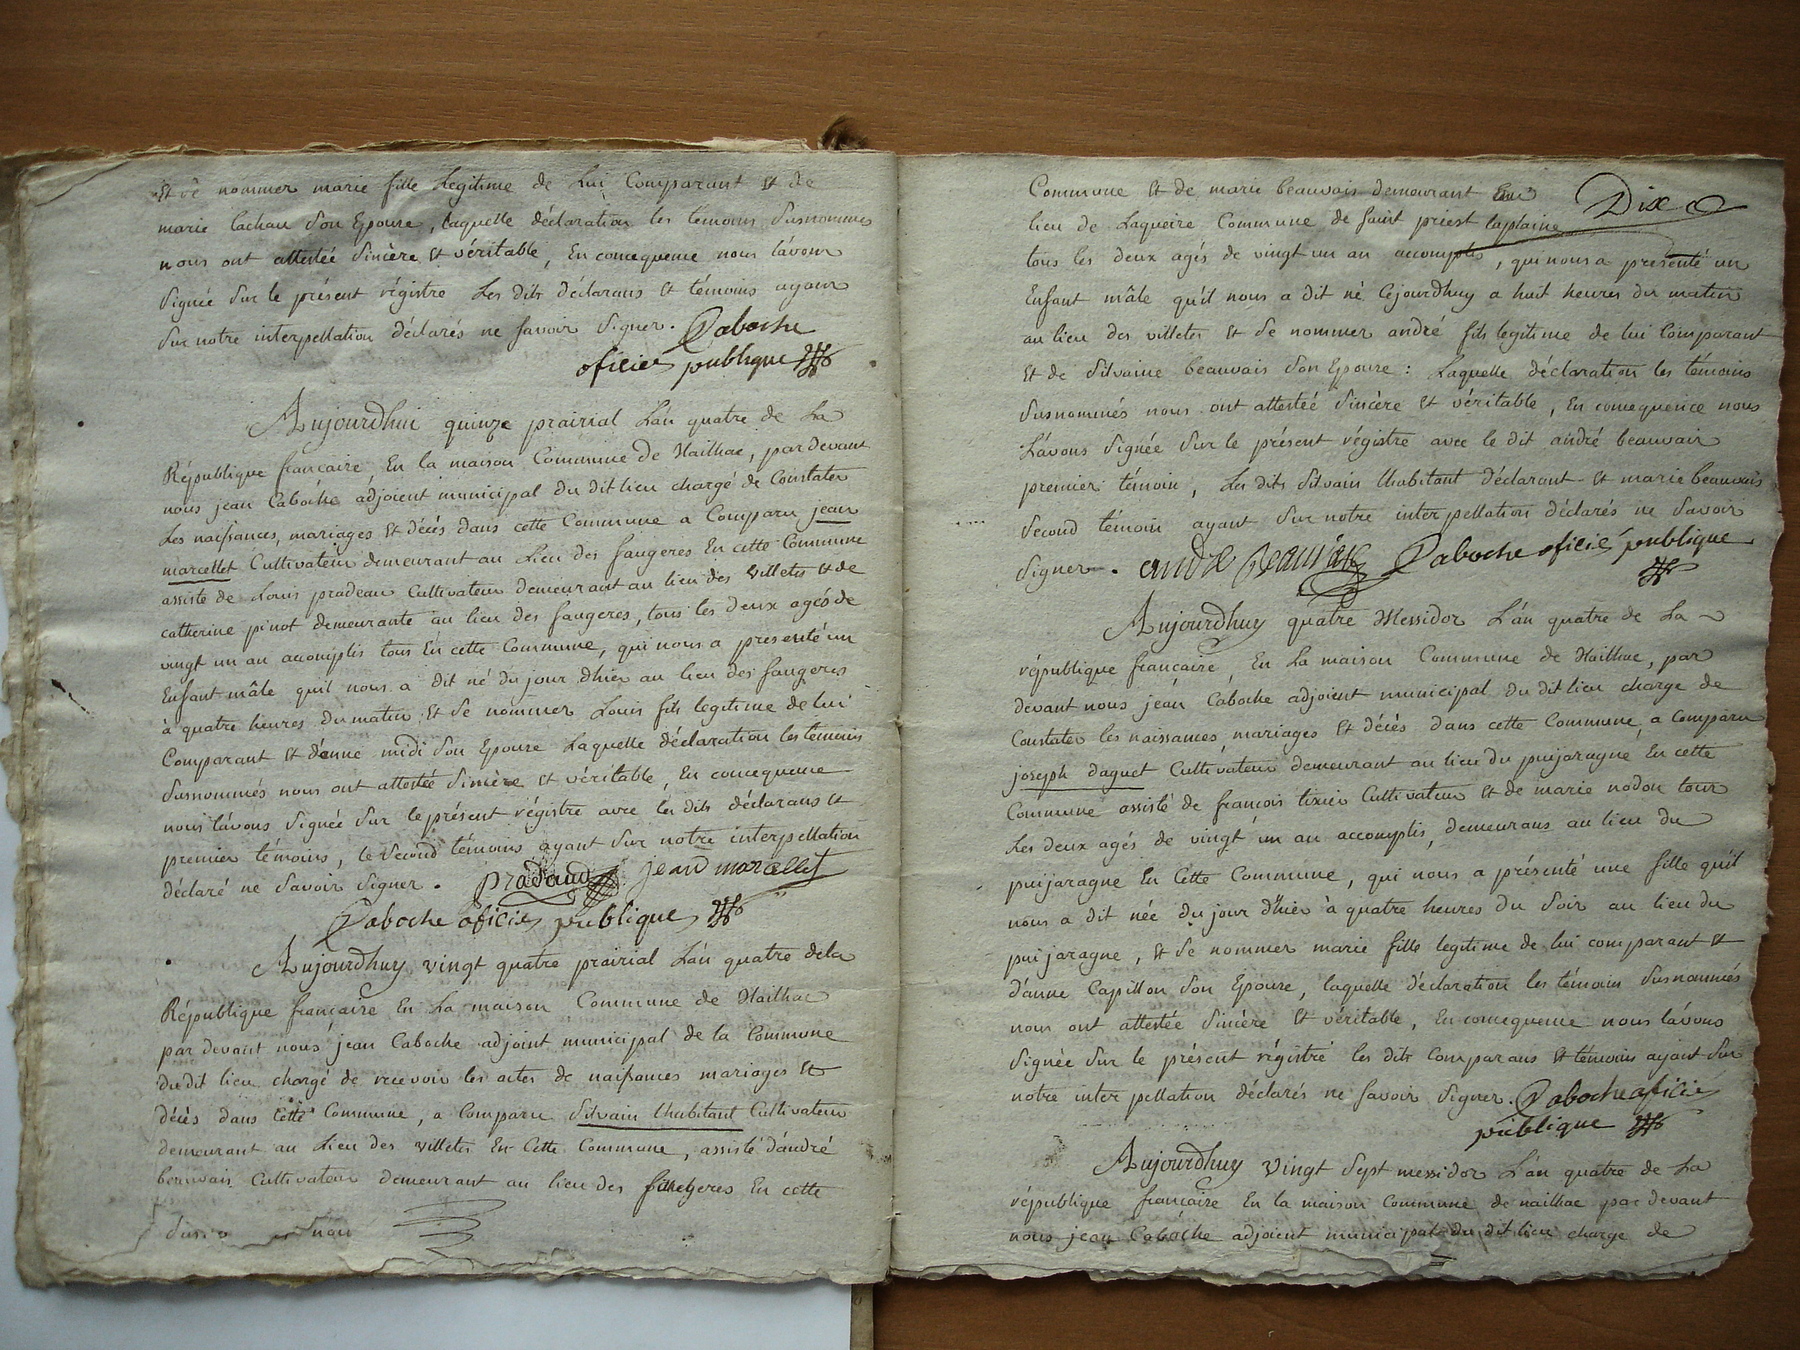 Et se nommer marie fille Legitime de Lui Comparant Et de
marie Lachau son Epouse, Laquelle déclaration les témoins susnommés
nous ont attestée sincère Et véritable, En consequence nous l'avons
signée sur le présent régistre Les dits déclarans Et témoins ayans
sur notre interpellation déclarés ne savoir signer. Caboche
oficier publique
Aujourdhui quinze prairial L'an quatre de La
République francaise En la maison Commune de Nailhac, pardevant
nous jean Caboche adjoient municipal du dit lieu chargé de Constater
Les naissances, mariages Et décès dans cette Commune a Comparu jean
marcellet Cultivateur demeurant au Lieu des faugeres En cette Commune
assisté de Louis pradeau Cultivateur demeurant au lieu des villetes Et de
catherine pinot demeurante au lieu des faugeres, tous les deux agés de
vingt un an accomplis tous En cette Commune, qui nous a presenté un
Enfant mâle quil nous a dit né du jour dhier au lieu des faugeres
à quatre heures du matin Et se nommer Louis fils legitime de lui
Comparant Et d'anne midi son Epouse Laquelle déclaration les temoins
susnommés nous ont attestée sincère Et véritable, En consequence
nous l'avons signée sur le présent régistre avec les dits déclarans Et
premier témoins, le second témoins ayant sur notre interpellation
déclaré ne savoir signer. pradaud jean marcellet
Caboche oficier publique
Aujourdhuy vingt quatre prairial L'an quatre de la
République francaise En La maison Commune de Nailhac
par devant nous jean Caboche adjoint municipal de la Commune
du dit lieu chargé de recevoir les actes de naissances mariages Et
décès dans cette Commune, a Comparu silvain Lhabitant Cultivateur
demeurant au Lieu des villetes En Cette Commune, assisté d'andré
beauvais Cultivateur demeurant au lieu des faugeres En cette
Dix
Commune Et de marie beauvais demeurant au
lieu de Laqueire Commune de saint priest laplaine
tous les deux agés de vingt un an accomplis, qui nous a presenté un
Enfant mâle qu'il nous a dit né Cejourdhuy a huit heures du matin
au lieu des villetes Et se nommer andré fils legitime de lui Comparant
Et de silvaine beauvais son Epouse : Laquelle déclaration les témoins
susnommés nous ont attestée sincère Et véritable, En consequence nous
L'avons signée sur le présent régistre avec le dit andré beauvais
premier témoin, Les dits silvain Lhabitant déclarant Et marie beauvais
second témoin ayant sur notre interpellation déclarés ne savoir
signer. andre beauvais Caboche oficié publique
Aujourdhuy quatre Messidor L'an quatre de La
république francaise, En La maison Commune de Nailhac, par
devant nous jean Caboche adjoient municipal du dit lieu chargé de
Constater les naissances mariages Et décès dans cette Commune, a Comparu
joseph daguet Cultivateur demeurant au lieu du puijaragne En cette
Commune assisté de francois tixier Cultivateur Et de marie nodou tous
Les deux agés de vingt un an accomplis, demeurans au lieu du
puijaragne En Cette Commune, qui nous a présenté une fille qu'il
nous a dit née du jour d'hier à quatre heures du soir au lieu du
puijaragne, Et se nommer marie fille legitime de lui comparant Et
d'anne Capillon son Epouse, laquelle déclaration les témoins susnommés
nous ont attestée sincère Et véritable, En consequence nous l'avons
signée sur le présent régistre les dits Comparans Et témoins ayant sur
notre interpellation déclarés ne savoir signer. Caboche oficié
publique
Aujourdhuy vingt sept messidor L'an quatre de La
république francaise En la maison Commune de nailhac par devant
nous jean Caboche adjoient municipal du dit lieu charge de